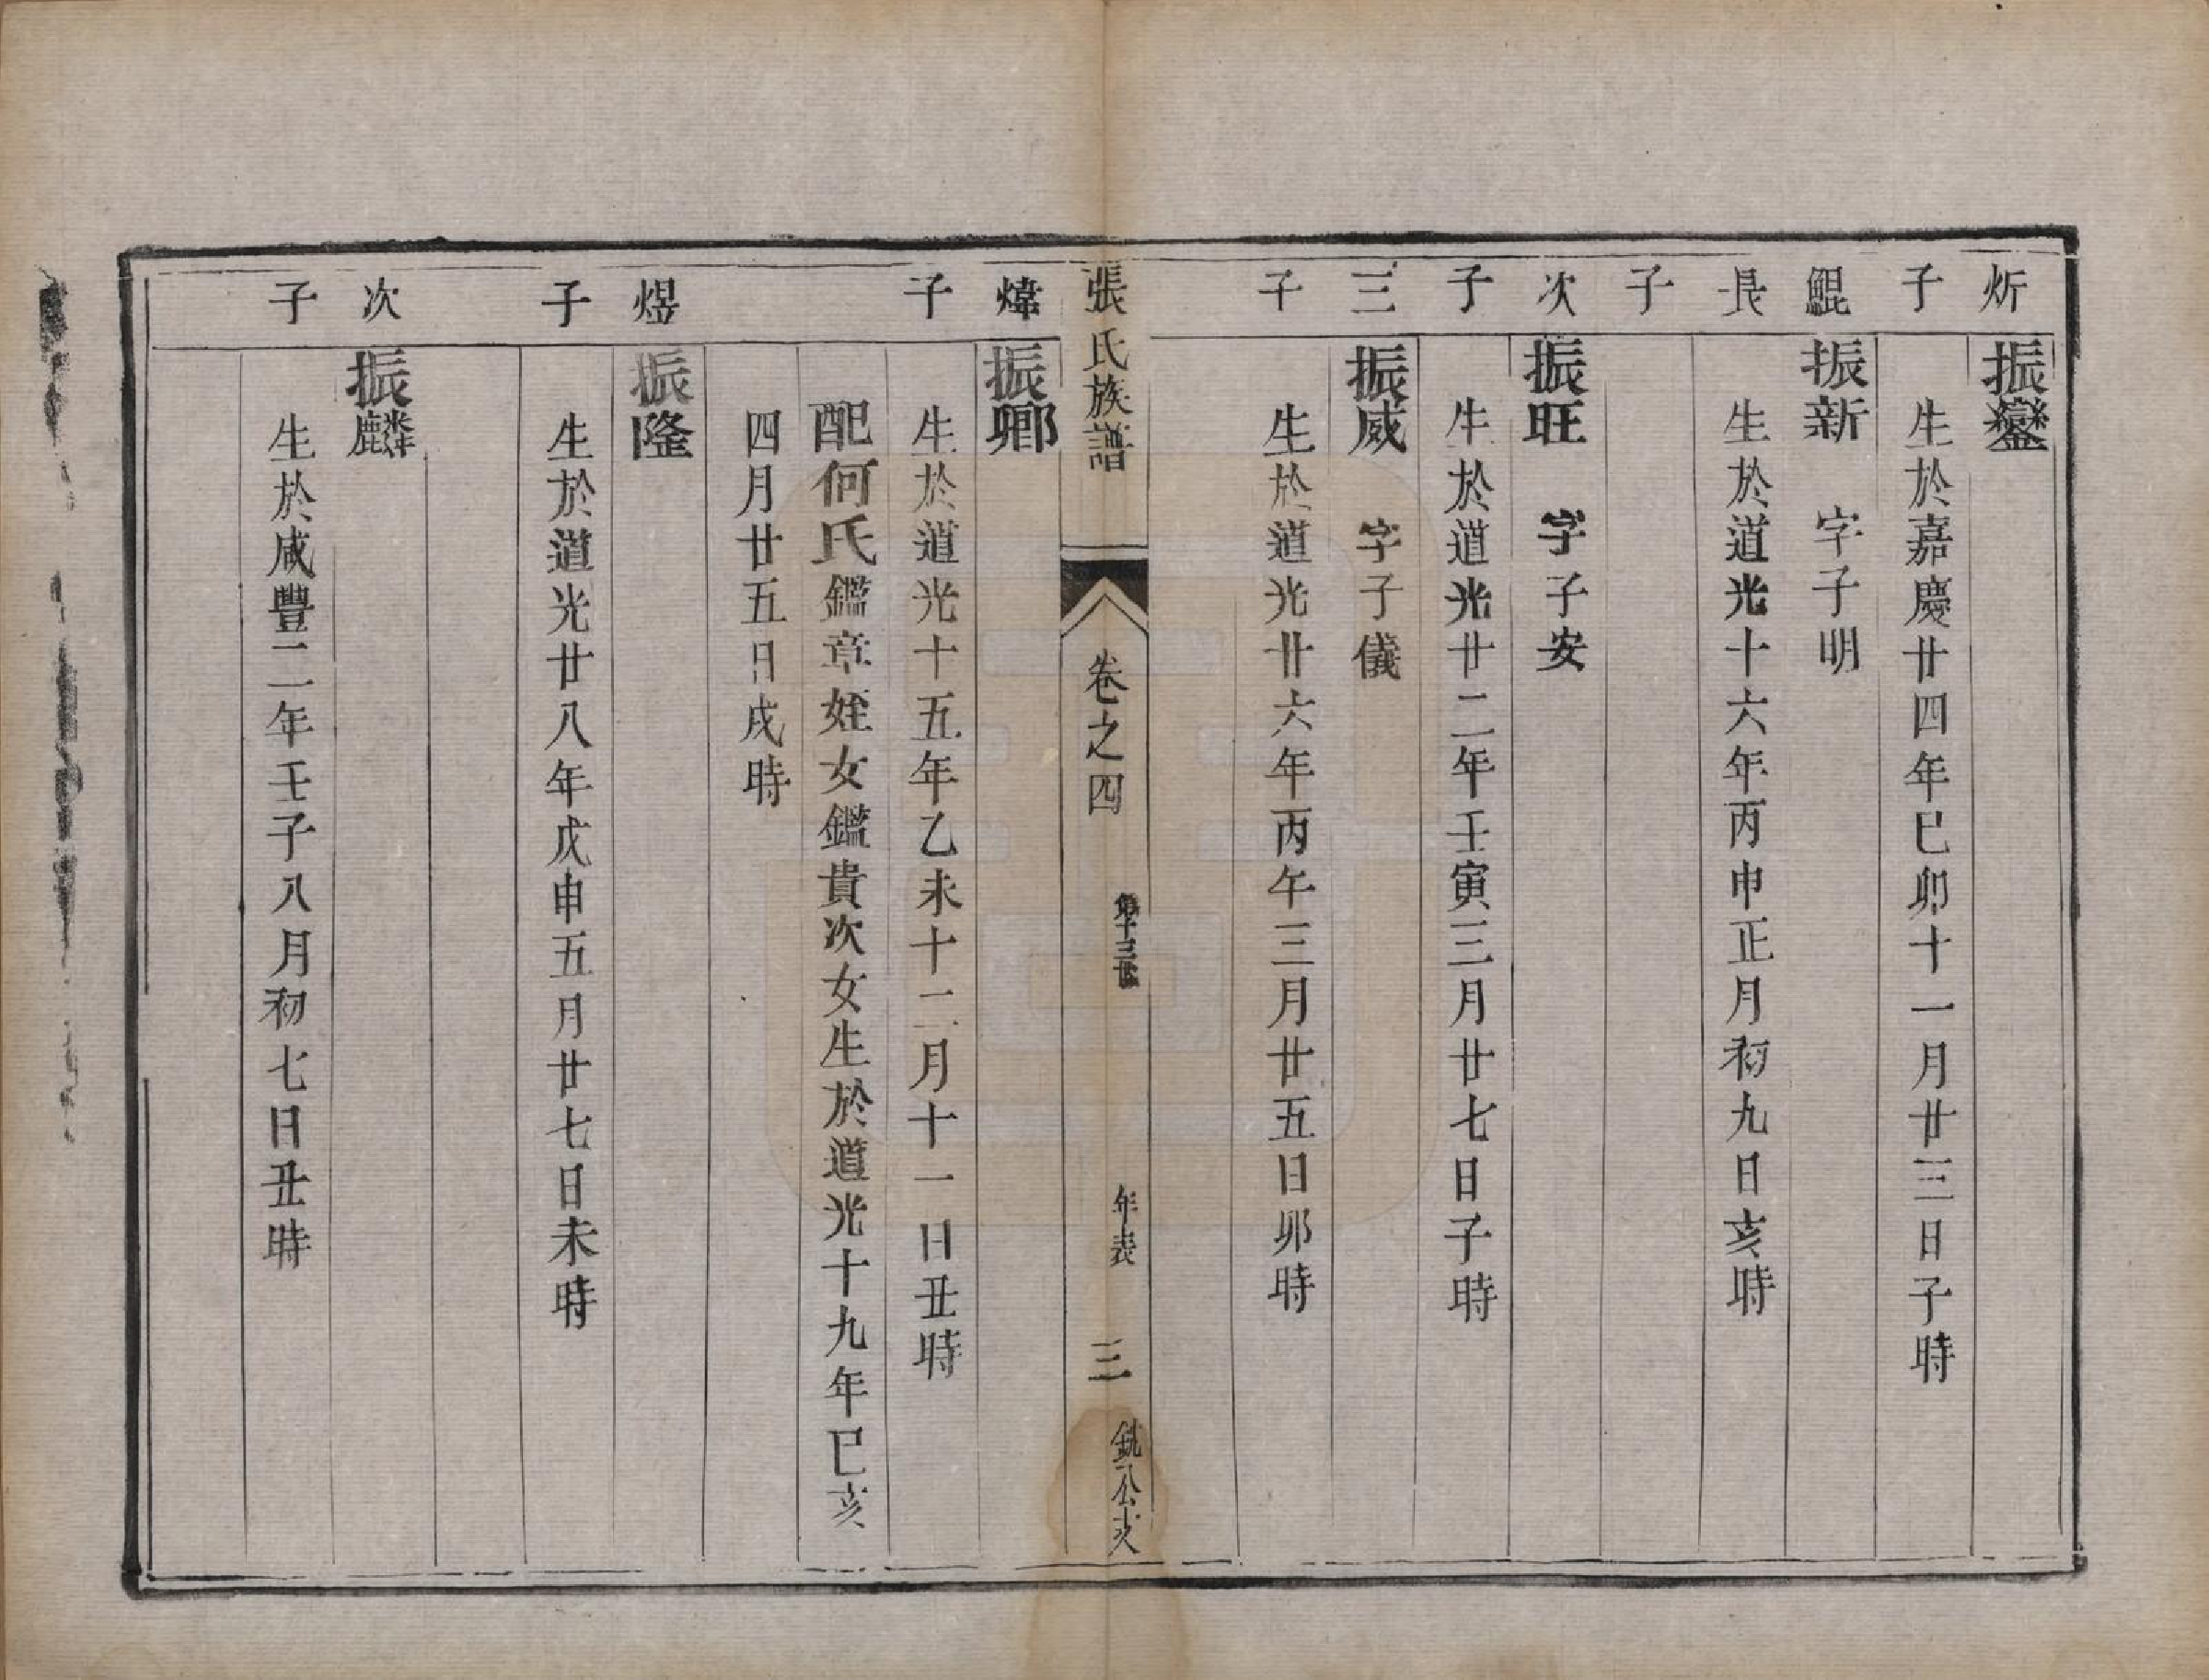 炘
子
振鑾
生於嘉慶廿四年巳卯十一月廿三日子時
鯤
長
子
振新 字子明
生於道光十六年丙申正月初九日亥時
次
子
振旺 字子安
生於道光廿二年壬寅三月廿七日子時
三
子
振威 字子儀
生於道光廿六年丙午三月廿五日卯時
張氏族譜 卷之四 第十三世 年表 三
煒
子
振卿
生於道光十五年乙未十二月十一日丑時
配何氏鑑章姪女鑑貴次女生於道光十九年巳亥
四月廿五日戌時
煜
子
振隆
生於道光廿八年戊申五月廿七日未時
次
子
振麟
生於咸豐二年壬子八月初七日丑時